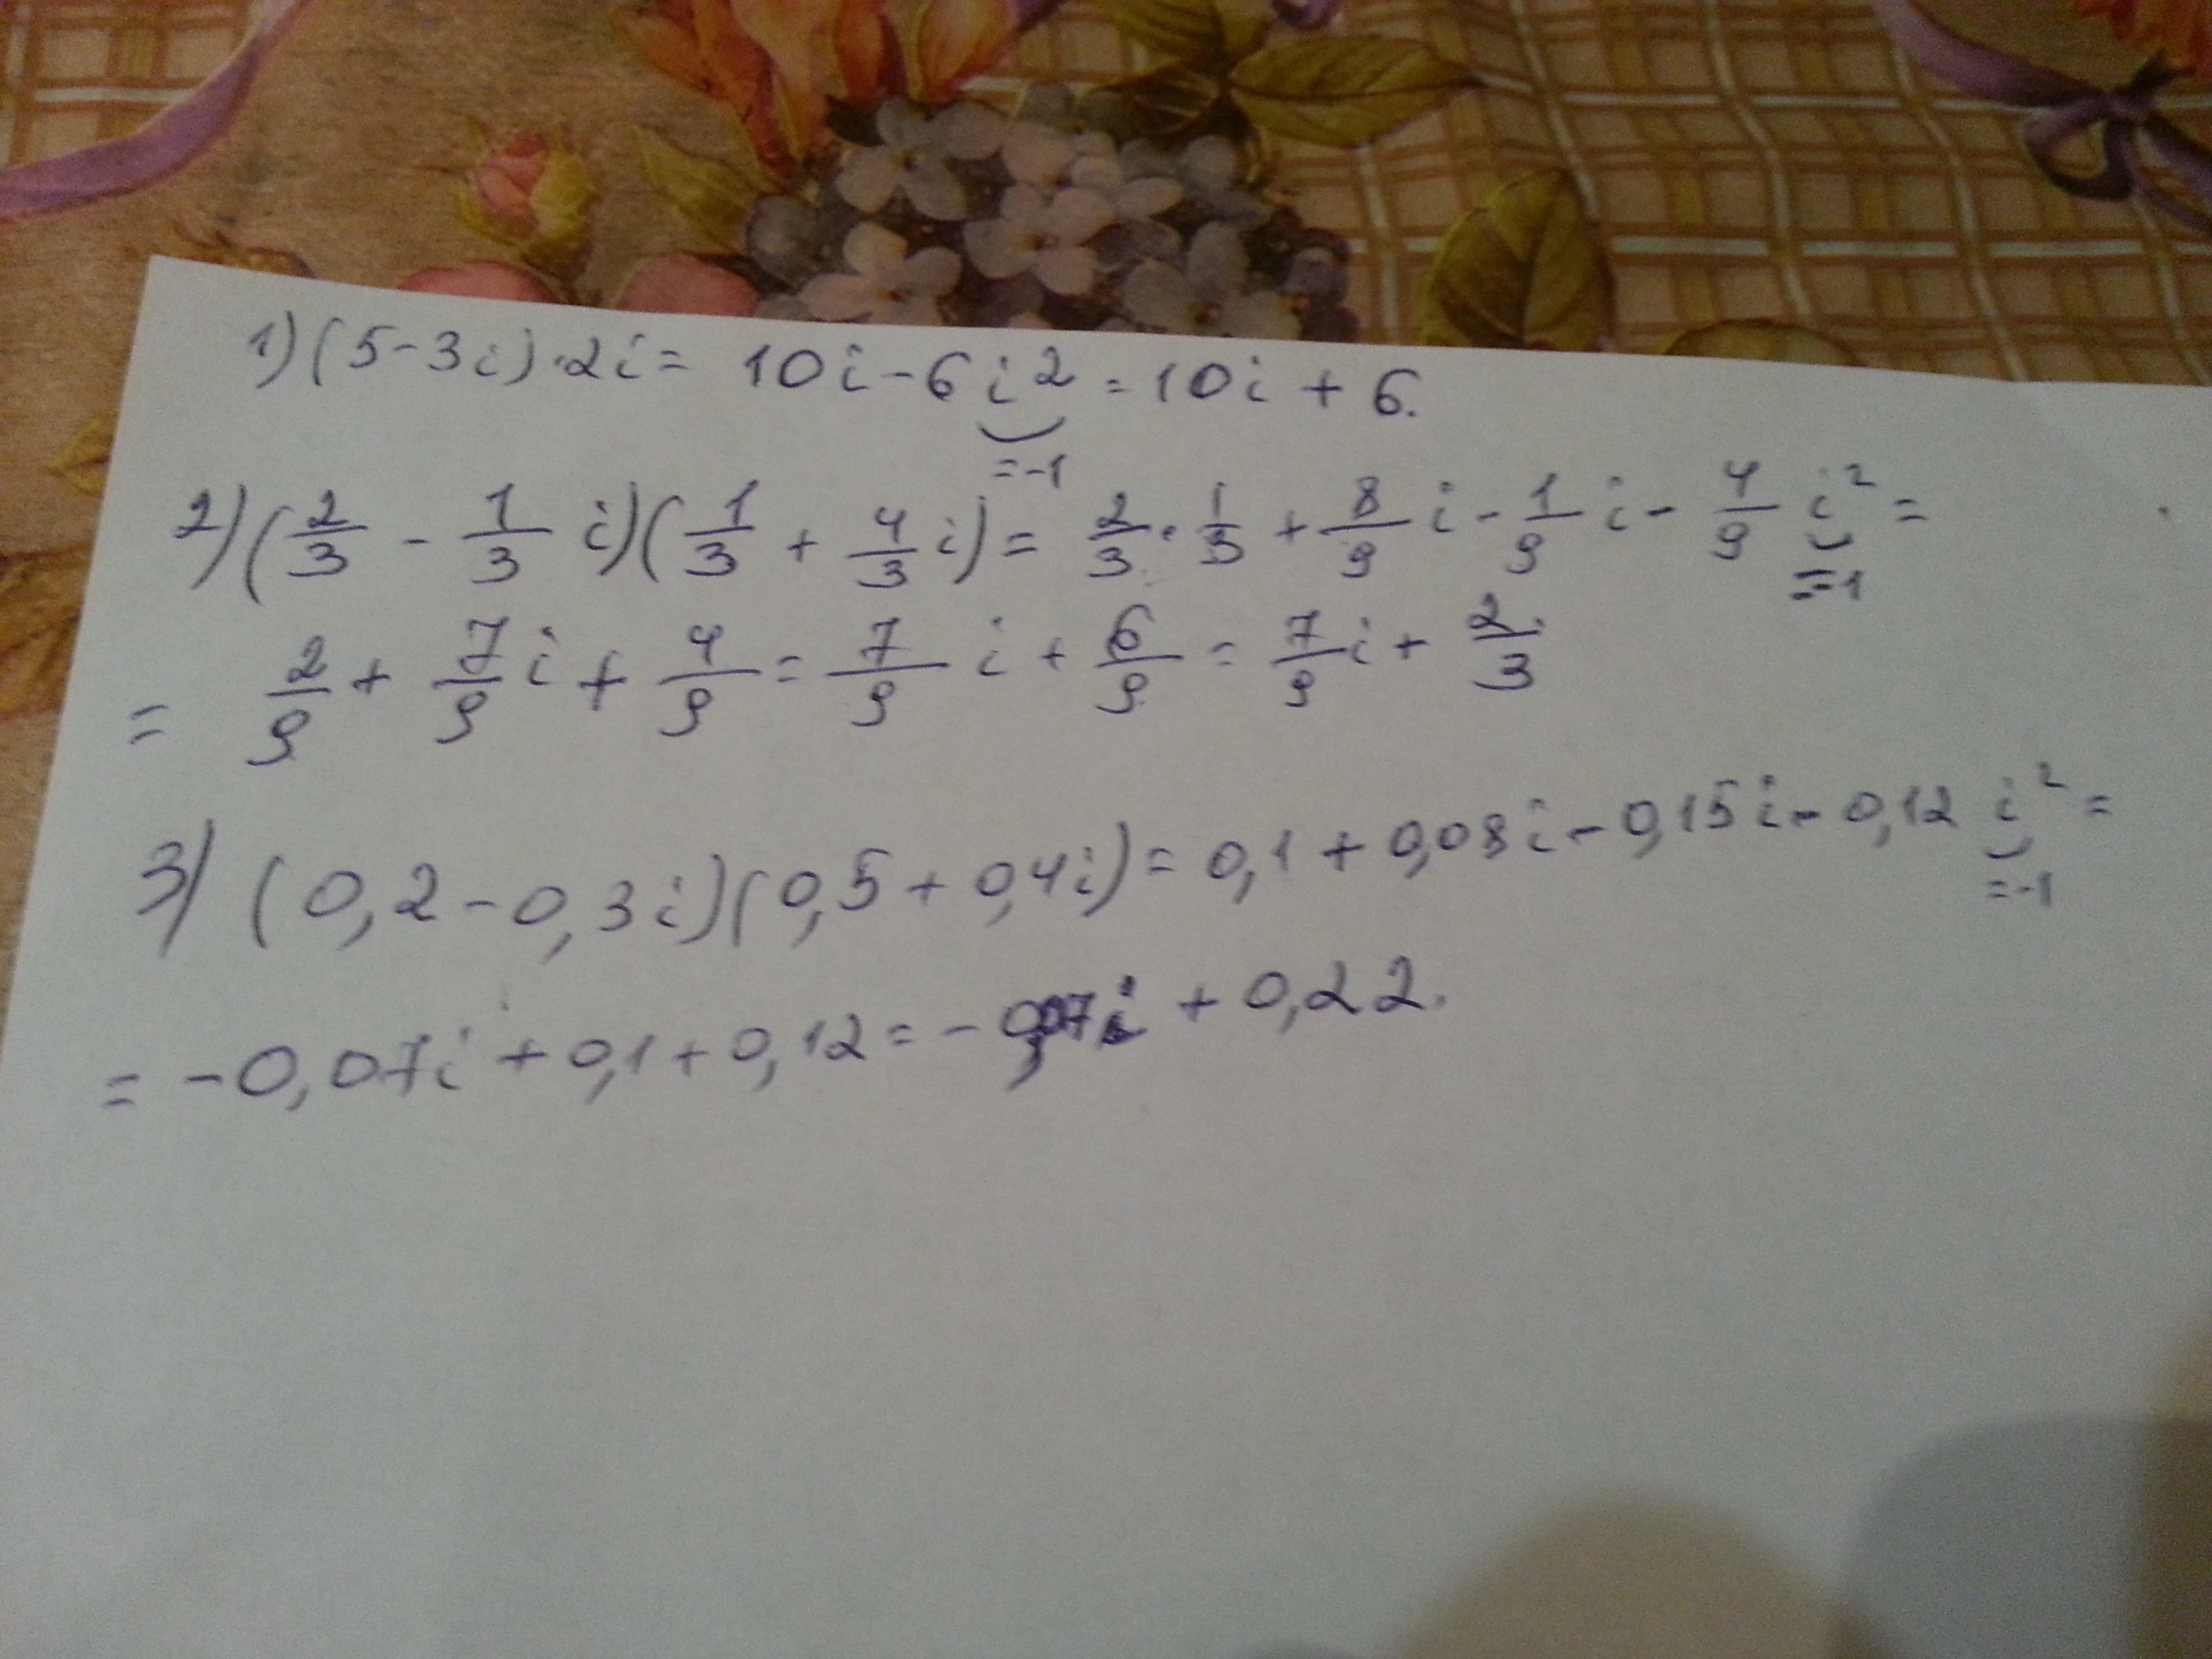 1) (5-3i)·2i = 10i - 6i² = 10i + 6.
=-1
2) (2/3 - 1/3 i)(1/3 + 4/3 i) = 2/3 · 1/3 + 8/9 i - 1/9 i - 4/9 i² =
=-1
= 2/9 + 7/9 i + 4/9 = 7/9 i + 6/9 = 7/9 i + 2/3.
3) (0,2 - 0,3i)(0,5 + 0,4i) = 0,1 + 0,08i - 0,15i - 0,12 i² =
=-1
= -0,07i + 0,1 + 0,12 = -0,07i + 0,22.